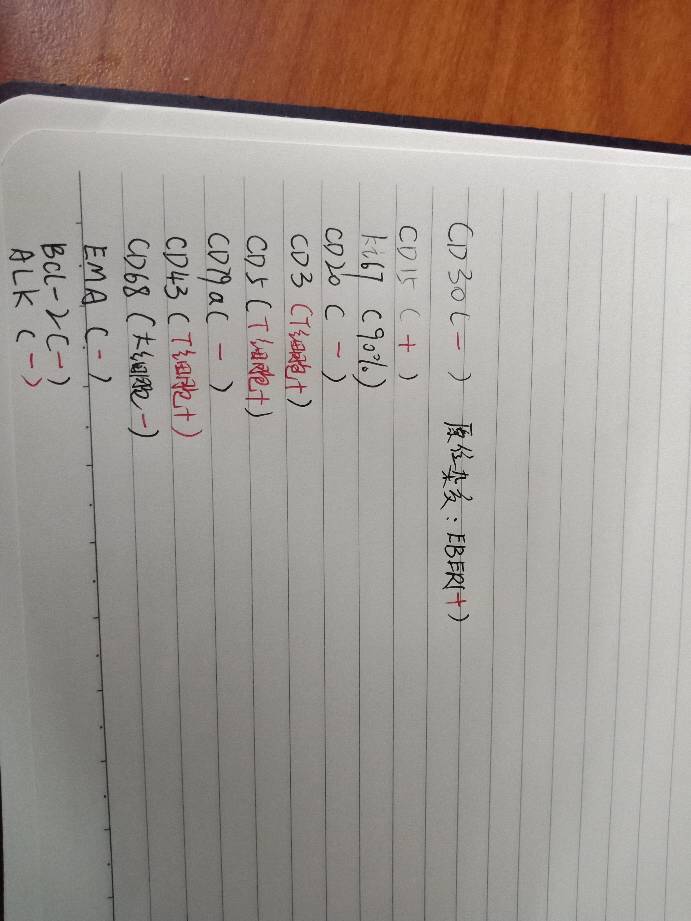 CD30(-) 原位杂交:EBER(+)
CD15(+)
Ki67(90%)
CD20(-)
CD3(T细胞+)
CD5(T细胞+)
CD79a(-)
CD43(T细胞+)
CD68(大细胞-)
EMA(-)
BCL-2(-)
ALK(-)